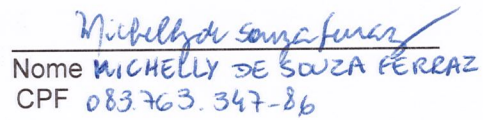 Michelly de Souza Ferraz
Nome MICHELLY DE SOUZA FERRAZ
CPF 083.763.347-86